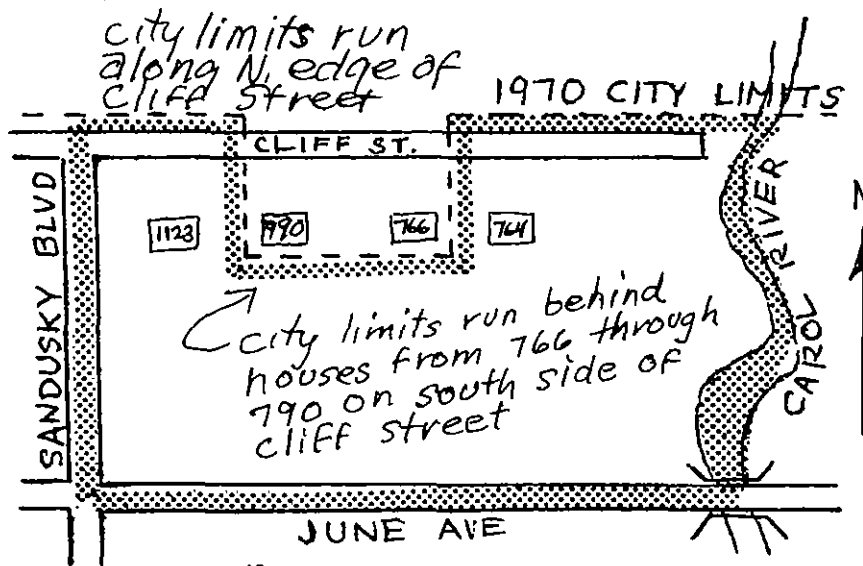 city limits run
along N. edge of
Cliff Street
1970 CITY LIMITS
CLIFF ST.
SANDUSKY BLVD
1123
790
766
764
N
CAROL RIVER
city limits run behind
houses from 766 through
790 on south side of
Cliff Street
JUNE AVE